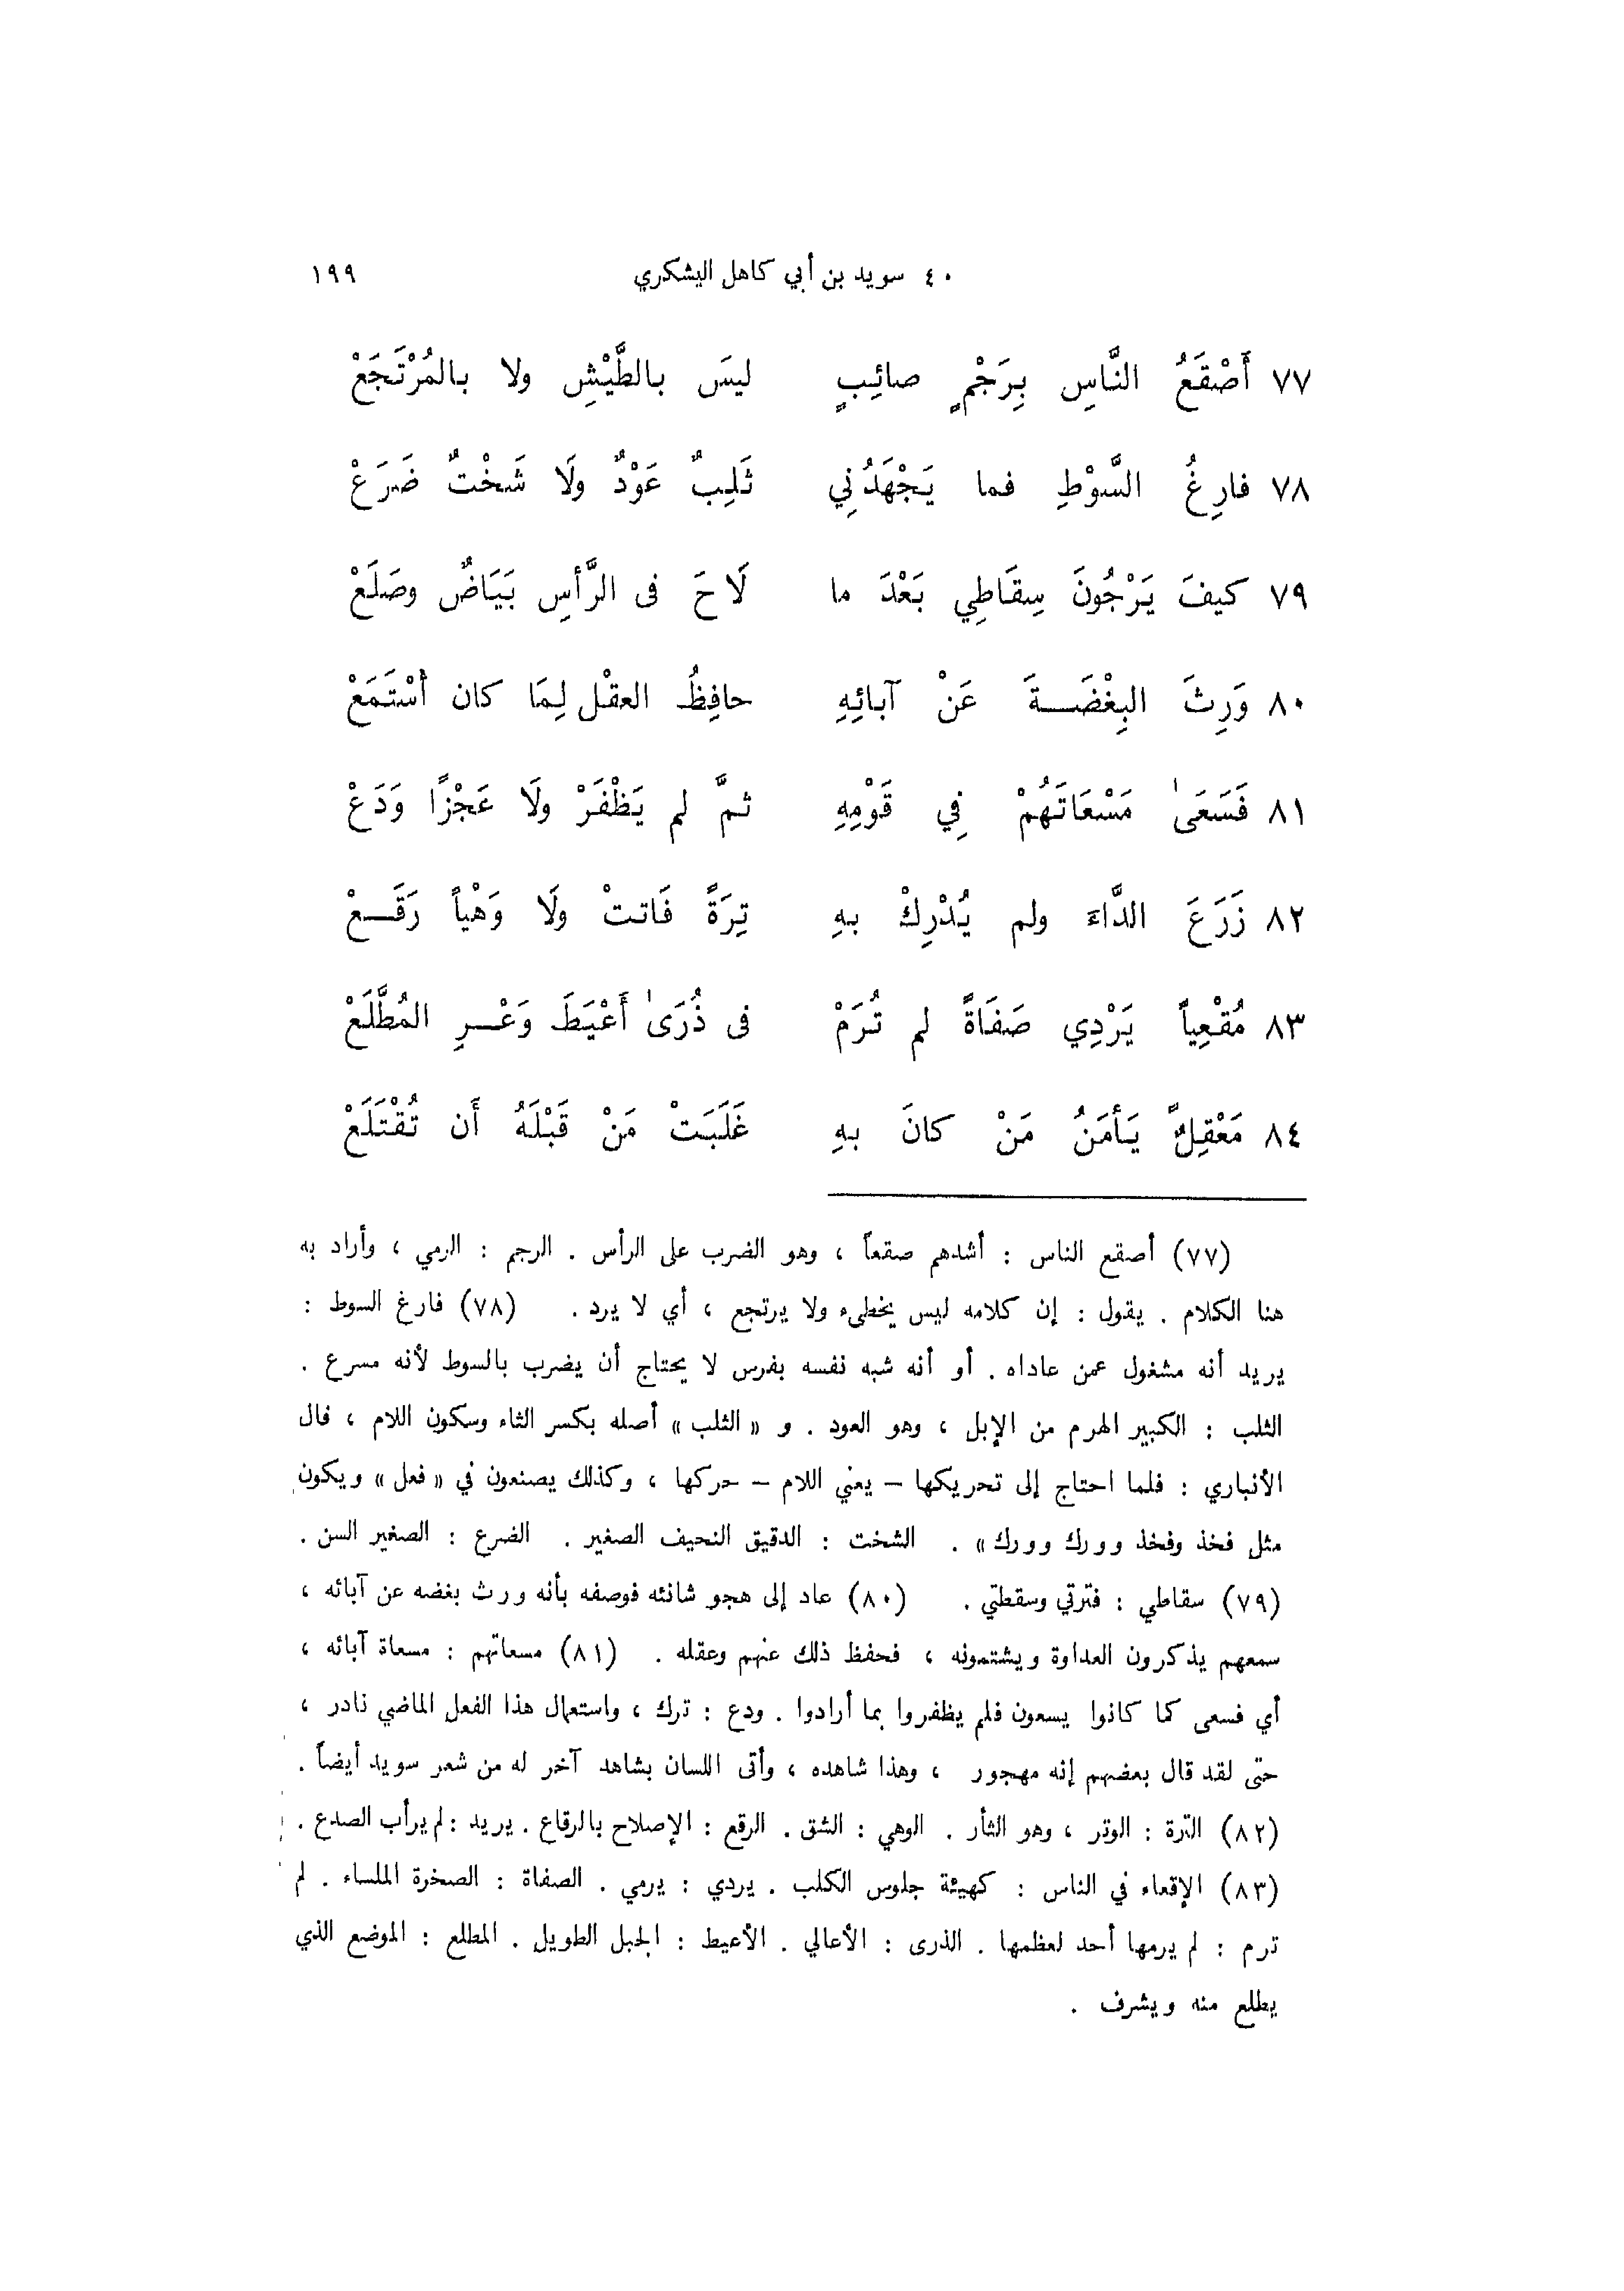 ٤٠ سويد بن أبي كاهل اليشكري ١٩٩
٧٧ أَصْقَعُ النَّاسِ بِرَجْمٍ صائِبٍ ليسَ بالطَّيْشِ ولا بالمُرْتَجَعْ
٧٨ فارِغُ السَّوْطِ فما يَجْهَدُنِي ثَلِبٌ عَوْدٌ ولَا شَخْتٌ ضَرَعْ
٧٩ كيفَ يَرْجُونَ سِقَاطِي بَعْدَ ما لَاحَ فى الرَّأسِ بَيَاضٌ وصَلَعْ
٨٠ وَرِثَ البِغْضَةَ عَنْ آبائِهِ حافِظُ العقْل لِمَا كان أسْتَمَعْ
٨١ فَسَعَىٰ مَسْعَاتَهُمْ فِي قَوْمِهِ ثمَّ لم يَظْفَرْ ولَا عَجْزًا وَدَعْ
٨٢ زَرَعَ الدَّاءَ ولم يُدْرِكْ بهِ تِرَةً فَاتتْ ولَا وَهْياً رَقَعْ
٨٣ مُقْعِياً يَرْدِي صَفَاةً لم تُرَمْ فى ذُرَىٰ أَعْيَطَ وَعْرِ المُطَّلَعْ
٨٤ مَعْقِلٌ يَأمَنُ مَنْ كانَ بهِ غَلَبَتْ مَنْ قَبْلَهُ أَن تُقْتَلَعْ
(٧٧) أصقع الناس : أشدهم صقعاً ، وهو الضرب على الرأس . الرجم : الرمي ، وأراد به
هنا الكلام . يقول : إن كلامه ليس يخطىء ولا يرتجع ، أي لا يرد . (٧٨) فارغ السوط :
يريد أنه مشغول عمن عاداه . أو أنه شبه نفسه بفرس لا يحتاج أن يضرب بالسوط لأنه مسرع .
الثلب : الكبير الهرم من الإبل ، وهو العود . و « الثلب » أصله بكسر الثاء وسكون اللام ، قال
الأنباري : فلما احتاج إلى تحريكها – يعني اللام – حركها ، وكذلك يصنعون في « فعل » ويكون
مثل فخذ وفخذ وورك وورك » . الشخت : الدقيق النحيف الصغير . الضرع : الصغير السن .
(٧٩) سقاطي : فترتي وسقطتي . (٨٠) عاد إلى هجو شانئه فوصفه بأنه ورث بغضه عن آبائه ،
سمعهم يذكرون العداوة ويشتمونه ، فحفظ ذلك عنهم وعقله . (٨١) مسعاتهم : مسعاة آبائه ،
أي فسعى كما كانوا يسعون فلم يظفروا بما أرادوا . ودع : ترك ، واستعمال هذا الفعل الماضي نادر ،
حتى لقد قال بعضهم إنه مهجور ، وهذا شاهده ، وأتى اللسان بشاهد آخر له من شعر سويد أيضاً .
(٨٢) الترة : الوتر ، وهو الثأر . الوهي : الشق . الرقع : الإصلاح بالرقاع . يريد : لم يرأب الصدع .
(٨٣) الإقعاء في الناس : كهيئة جلوس الكلب . يردي : يرمي . الصفاة : الصخرة الملساء . لم
ترم : لم يرمها أحد لعظمها . الذرى : الأعالي . الأعيط : الجبل الطويل . المطلع : الموضع الذي
يطلع منه ويشرف .